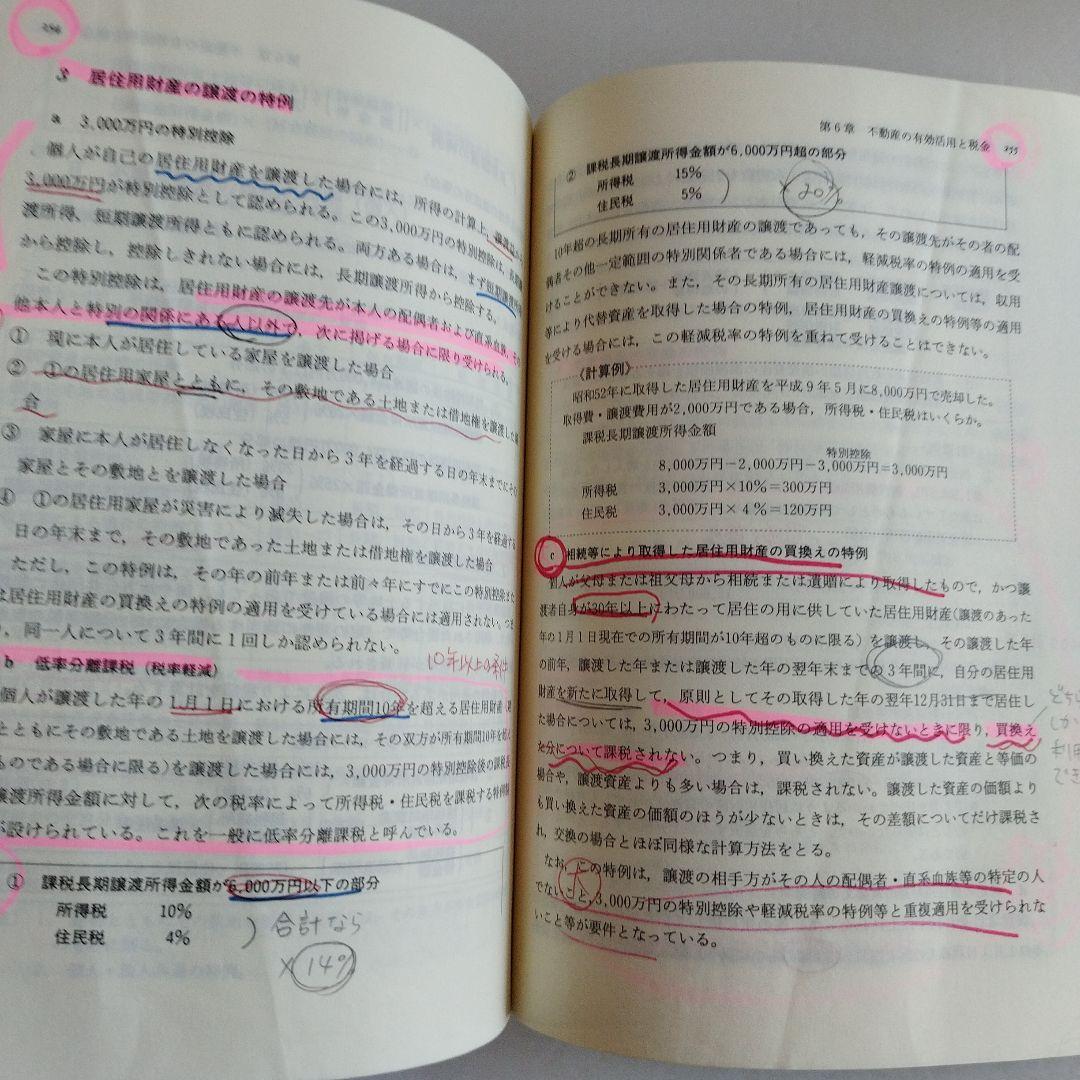 254
3 居住用財産の譲渡の特例
a 3,000万円の特別控除
個人が自己の居住用財産を譲渡した場合には，所得の計算上，譲渡
3,000万円が特別控除として認められる。この3,000万円の特別控除は，長期
渡所得，短期譲渡所得ともに認められる。両方ある場合は，まず短期譲渡所
から控除し，控除しきれない場合には，長期譲渡所得から控除する。
この特別控除は，居住用財産の譲渡先が本人の配偶者および直系血族，その
他本人と特別の関係にある人以外で，次に掲げる場合に限り受けられる。
① 現に本人が居住している家屋を譲渡した場合
② ①の居住用家屋とともに，その敷地である土地または借地権を譲渡した場
合
③ 家屋に本人が居住しなくなった日から3年を経過する日の年末までにその
家屋とその敷地とを譲渡した場合
④ ①の居住用家屋が災害により滅失した場合は，その日から3年を経過する
日の年末まで，その敷地であった土地または借地権を譲渡した場合
ただし，この特例は，その年の前年または前々年にすでにこの特別控除また
は居住用財産の買換えの特例の適用を受けている場合には適用されない。つま
，同一人について3年間に1回しか認められない。
10年以上の条件
b 低率分離課税（税率軽減）
個人が譲渡した年の1月1日における所有期間10年を超える居住用財産
とともにその敷地である土地を譲渡した場合には，その双方が所有期間10年を超え
ものである場合に限る）を譲渡した場合には，3,000万円の特別控除後の課税長
譲渡所得金額に対して，次の税率によって所得税・住民税を課税する特例
が設けられている。これを一般に低率分離課税と呼んでいる。
① 課税長期譲渡所得金額が6,000万円以下の部分
所得税 10%
住民税 4%
合計なら
×14%
第6章 不動産の有効活用と税金 255
② 課税長期譲渡所得金額が6,000万円超の部分
所得税 15%
住民税 5%
×20%
10年超の長期所有の居住用財産の譲渡であっても，その譲渡先がその者の配
偶者その他一定範囲の特別関係者である場合には，軽減税率の特例の適用を受
けることができない。また，その長期所有の居住用財産譲渡については，収用
等により代替資産を取得した場合の特例，居住用財産の買換えの特例等の適用
を受ける場合には，この軽減税率の特例を重ねて受けることはできない。
〈計算例〉
昭和52年に取得した居住用財産を平成9年5月に8,000万円で売却した。
取得費・譲渡費用が2,000万円である場合，所得税・住民税はいくらか。
課税長期譲渡所得金額
特別控除
8,000万円－2,000万円－3,000万円＝3,000万円
所得税 3,000万円×10%＝300万円
住民税 3,000万円×4%＝120万円
c 相続等により取得した居住用財産の買換えの特例
個人が父母または祖父母から相続または遺贈により取得したもので，かつ譲
渡者自身が30年以上にわたって居住の用に供していた居住用財産（譲渡のあった
年の1月1日現在での所有期間が10年超のものに限る）を譲渡し，その譲渡した年
の前年，譲渡した年または譲渡した年の翌年末までの3年間に，自分の居住用
財産を新たに取得して，原則としてその取得した年の翌年12月31日まで居住し
た場合については，3,000万円の特別控除の適用を受けないときに限り，買換え
を分について課税されない。つまり，買い換えた資産が譲渡した資産と等価の
場合や，譲渡資産よりも多い場合は，課税されない。譲渡した資産の価額より
も買い換えた資産の価額のほうが少ないときは，その差額についてだけ課税さ
れ，交換の場合とほぼ同様な計算方法をとる。
なお，この特例は，譲渡の相手方がその人の配偶者・直系血族等の特定の人
でないこと，3,000万円の特別控除や軽減税率の特例等と重複適用を受けられな
いこと等が要件となっている。